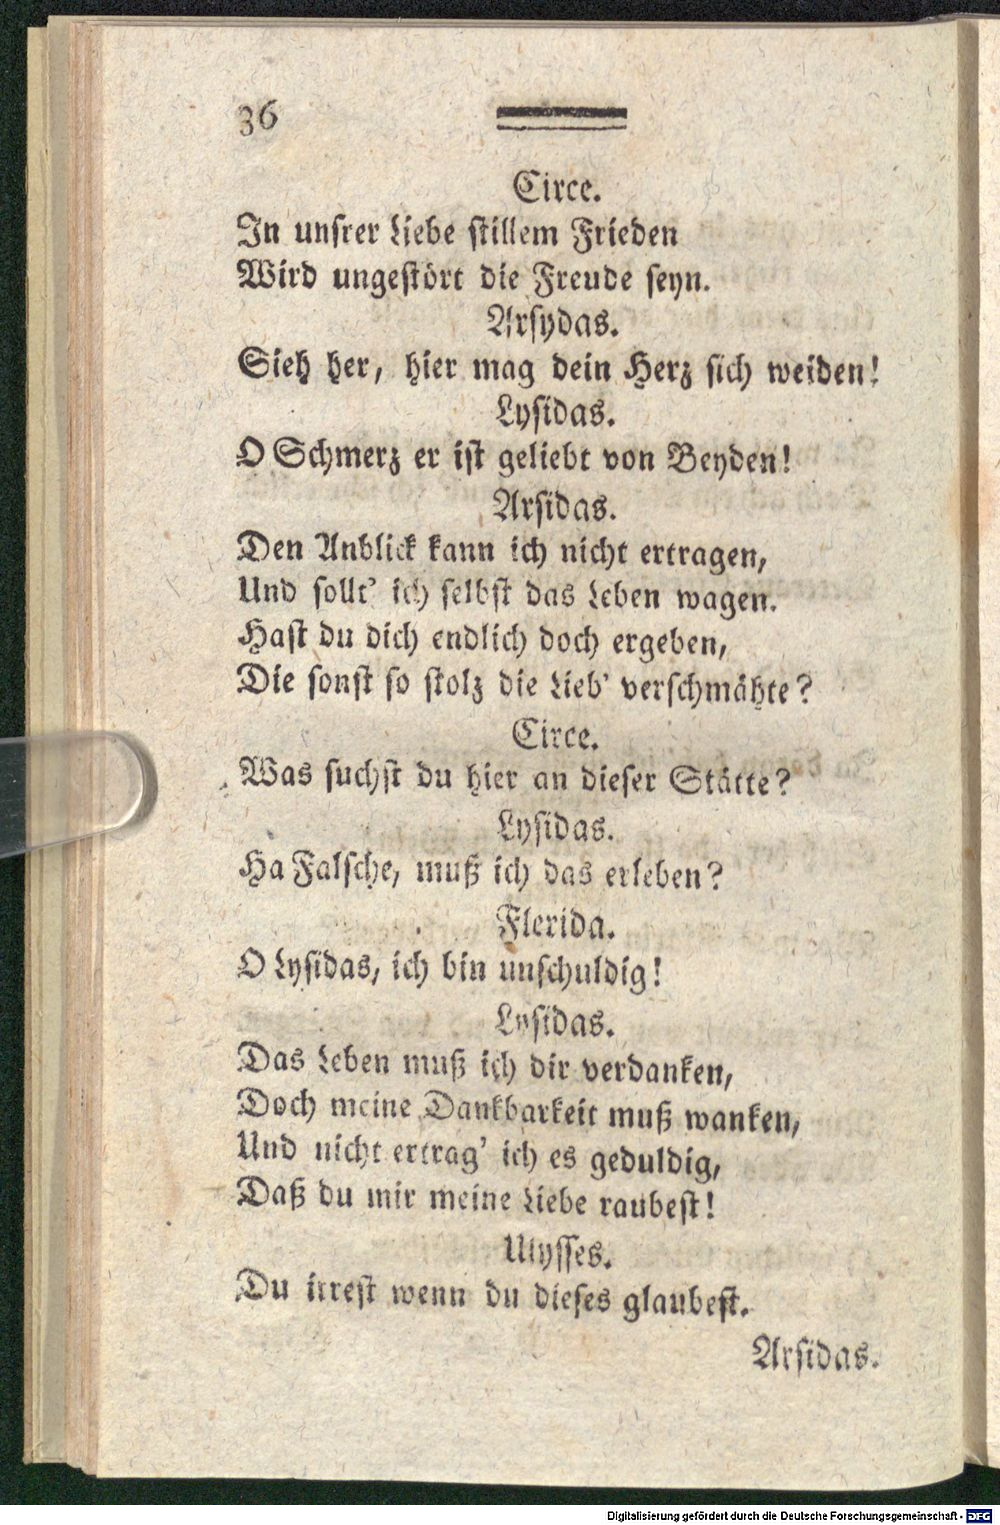 36
Circe.
In unsrer Liebe stillem Frieden
Wird ungestört die Freude seyn.
Arsydas.
Sieh her, hier mag dein Herz sich weiden!
Lysidas.
O Schmerz er ist geliebt von Beyden!
Arsidas.
Den Anblick kann ich nicht ertragen,
Und sollt' ich selbst das Leben wagen.
Hast du dich endlich doch ergeben,
Die sonst so stolz die Lieb' verschmähte?
Circe.
Was suchst du hier an dieser Stätte?
Lysidas.
Ha Falsche, muß ich das erleben?
Flerida.
O Lysidas, ich bin unschuldig!
Lysidas.
Das Leben muß ich dir verdanken,
Doch meine Dankbarkeit muß wanken,
Und nicht ertrag' ich es geduldig,
Daß du mir meine Liebe raubest!
Ulysses.
Du irrest wenn du dieses glaubest.
Arsidas.
Digitalisierung gefördert durch die Deutsche Forschungsgemeinschaft - DFG